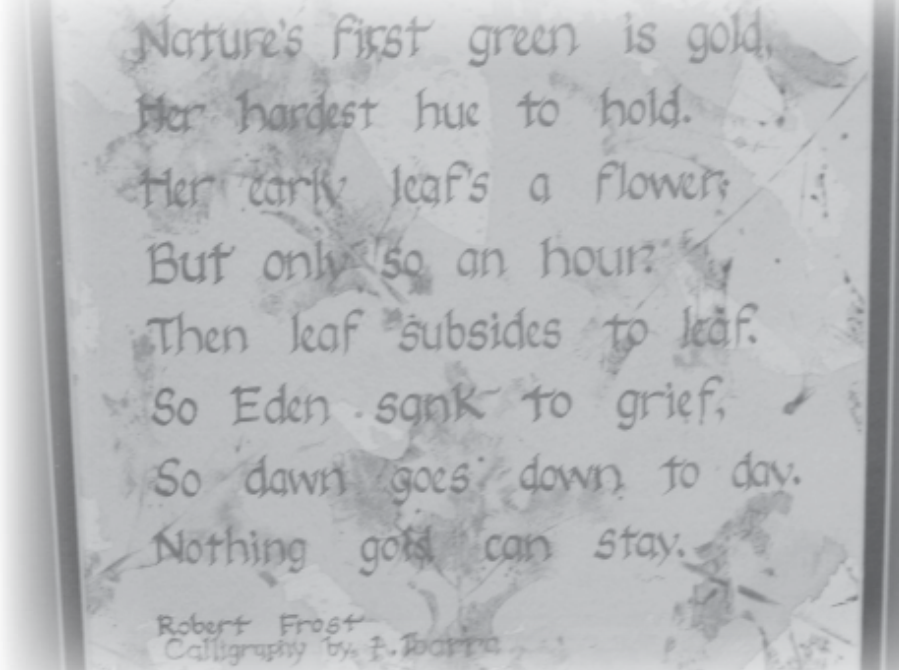 Nature's first green is gold,
Her hardest hue to hold.
Her early leaf's a flower;
But only so an hour.
Then leaf subsides to leaf.
So Eden sank to grief,
So dawn goes down to day.
Nothing gold can stay.
Robert Frost
Calligraphy by